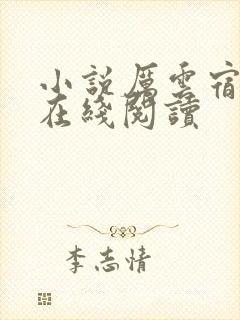 小説厲雲宿
在綫閱讀
李志情